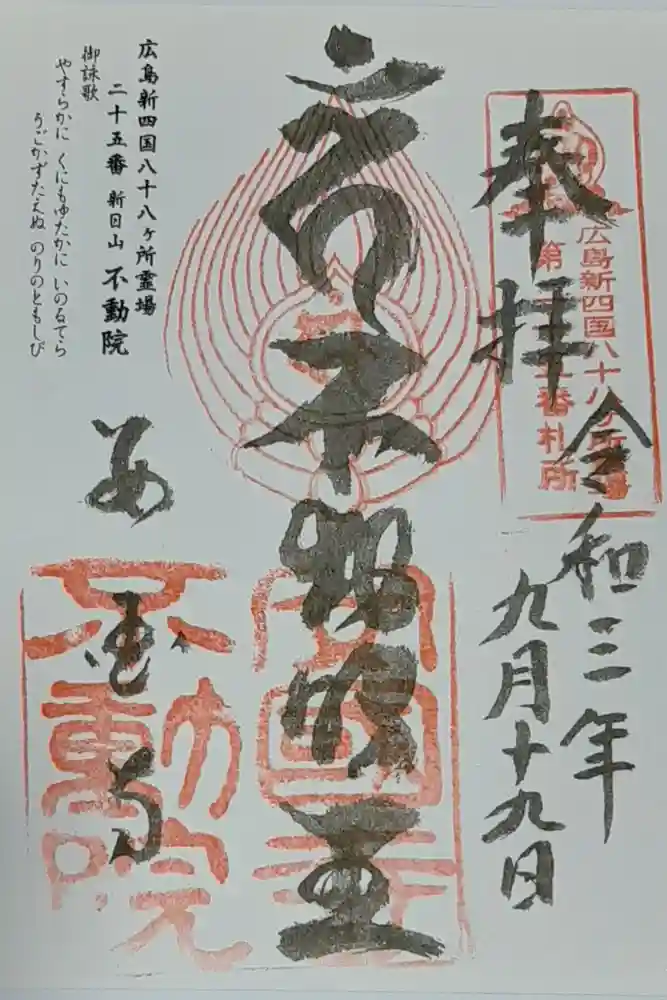 広島新四国八十八ヶ所霊場
第二十五番札所
奉拝
令和三年
九月十九日
不動明王
安国寺
安国寺
不動院
広島新四国八十八ヶ所霊場
二十五番 新日山 不動院
御詠歌
やすらかに くにもゆたかに いのるてら
うごかずたえぬ のりのともしび